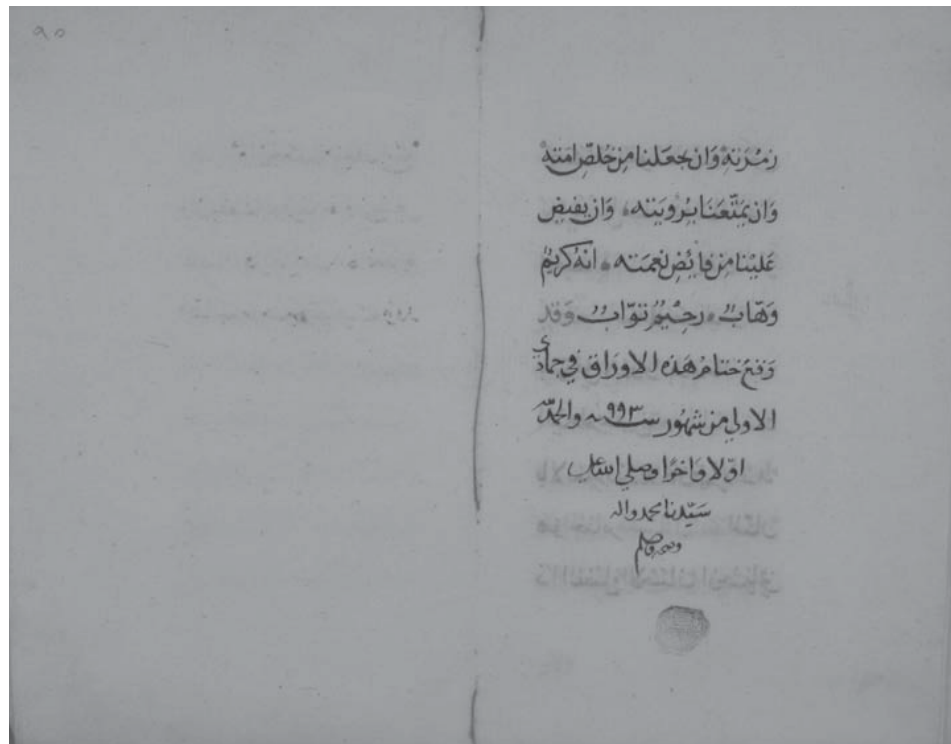 ٩٥
زمرته وان يجعلنا من خلّص امته
وان يمتّعنا برويته، وان يفيض
علينا من فايض نعمته، انه كريم
وهّاب، رحيم توّاب وقد
وقع ختام هذه الاوراق في جمادى
الاولى من شهور سنة ٩٩٣ والحمد لله
اوّلا واخرا وصلى الله على
سيّدنا محمد واله
وصحبه وسلم